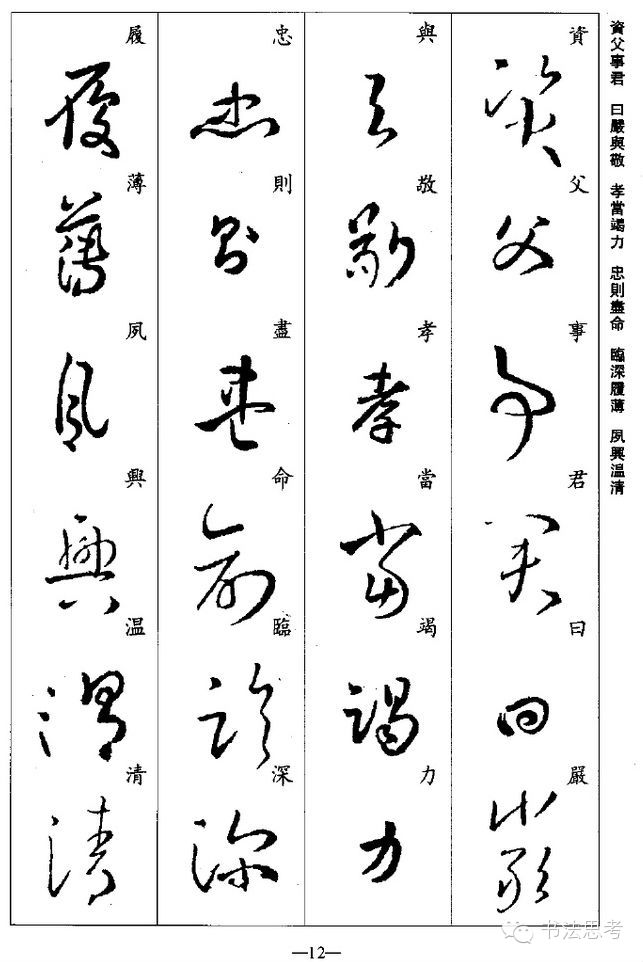 資父事君　曰嚴與敬　孝當竭力　忠則盡命　臨深履薄　夙興温清
資父事君曰嚴
與敬孝當竭力
忠則盡命臨深
履薄夙興温清
—12—
书法思考